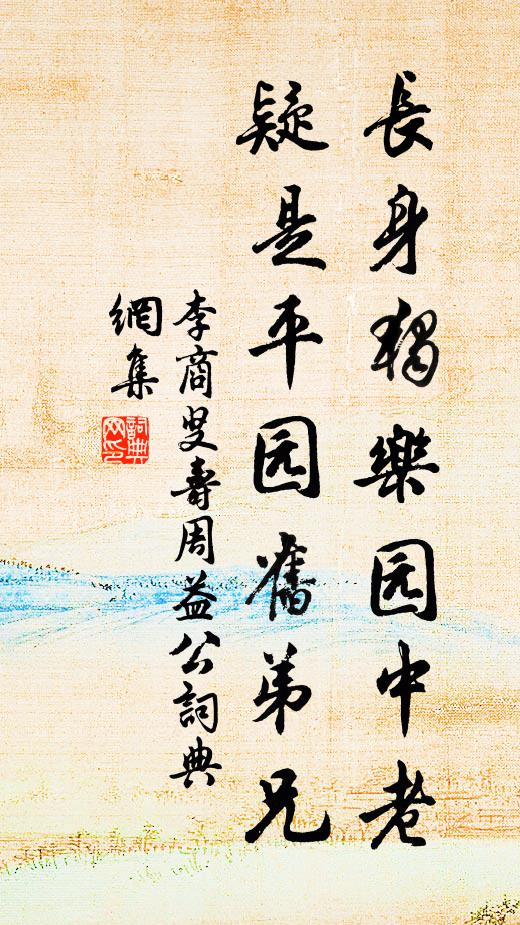 長身獨樂园中老
疑是平园舊弟兄
李商叟壽周益公詞典
網集
詞典
网印